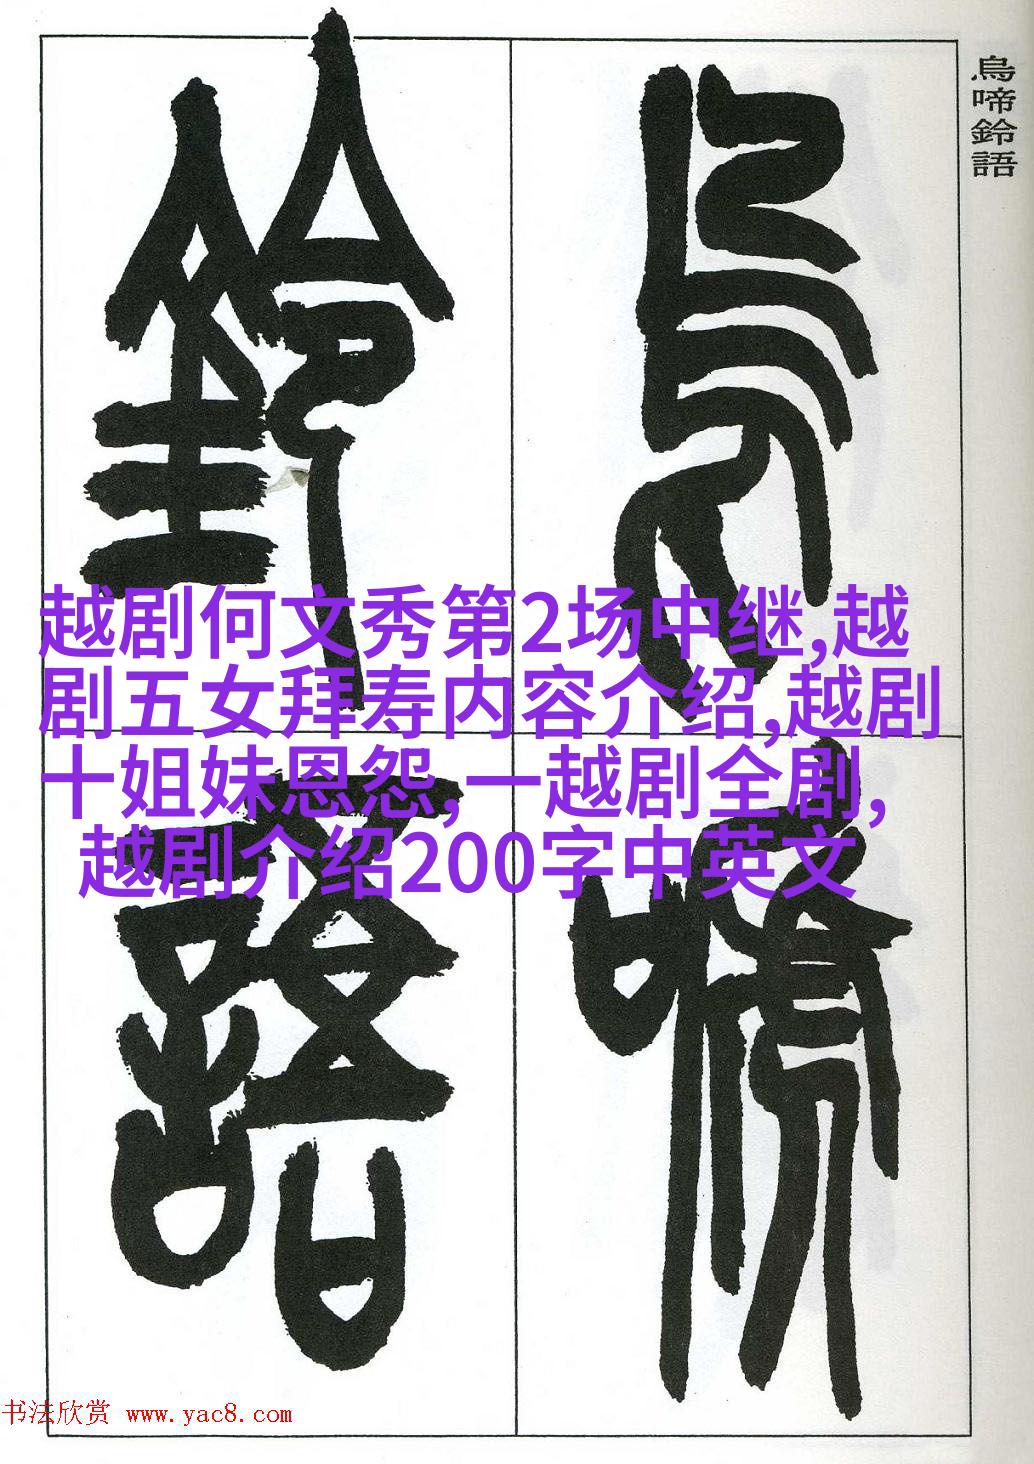 烏啼鈴語
烏啼
鈴語
越剧何文秀第2场中继,越
剧五女拜寿内容介绍,越剧
十姐妹恩怨,一越剧全剧,
越剧介绍200字中英文
书法欣赏 www.yac8.com